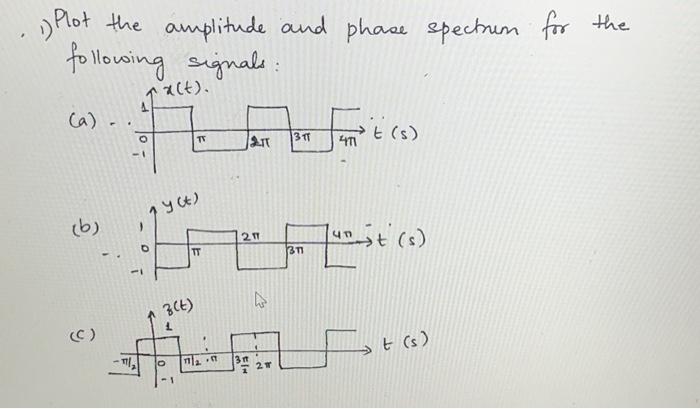 1) Plot the amplitude and phase spectrum for the
following signals :
x(t).
(a)
1
0
-1
π
2π
3π
4π
t (s)
y(t)
(b)
1
0
-1
π
2π
3π
4π
t (s)
z(t)
(c)
1
-π/2
0
-1
π/2
π
3π/2
2π
t (s)